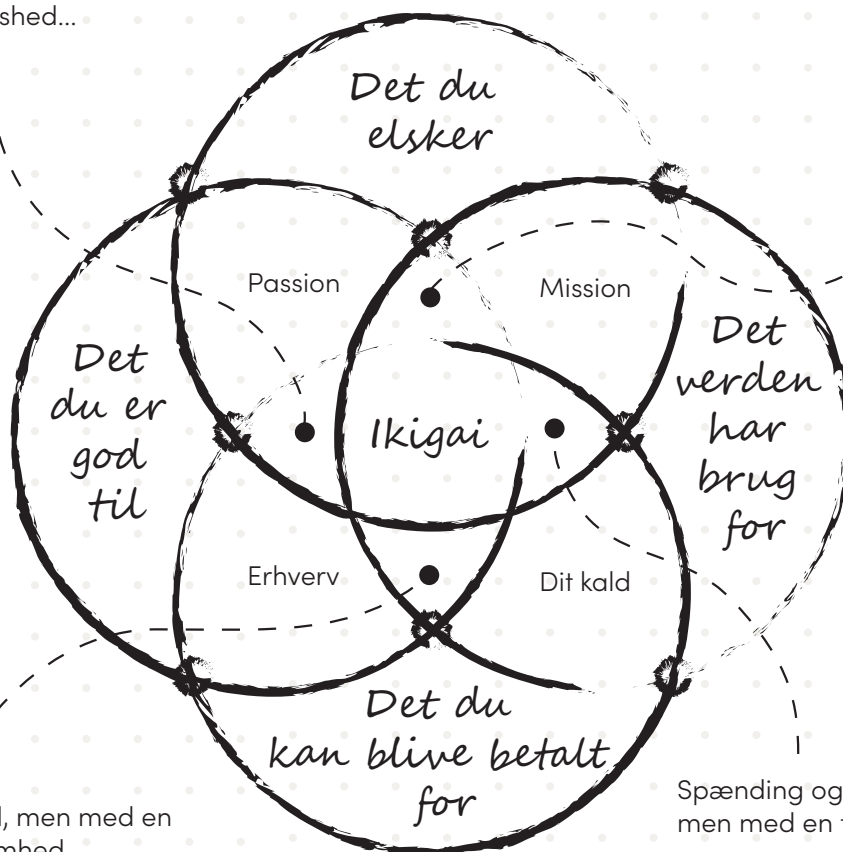 shed...
Det du
elsker
Passion
Mission
Det
du er
god
til
Ikigai
Det
verden
har
brug
for
Erhverv
Dit kald
Det du
kan blive betalt
for
Spænding og
men med en
, men med en
mhed